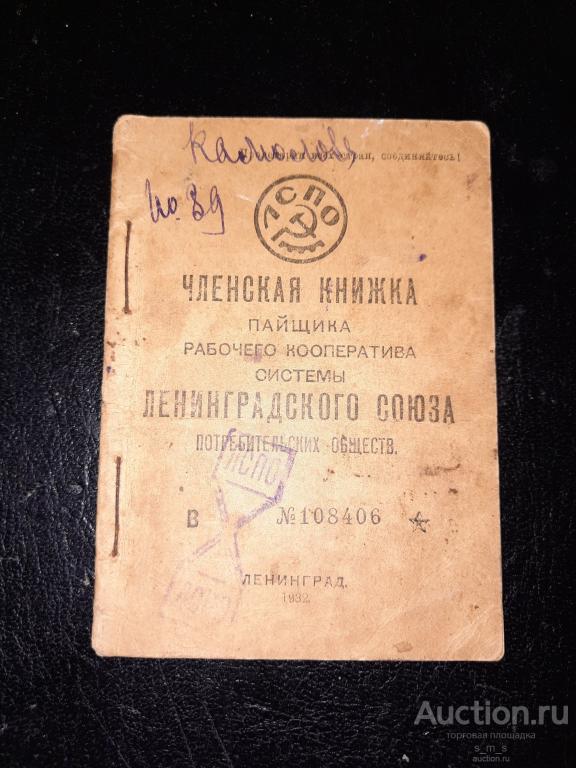 стран, соединяйтесь!
№ 39
ЛСПО
ЧЛЕНСКАЯ КНИЖКА
ПАЙЩИКА
РАБОЧЕГО КООПЕРАТИВА
СИСТЕМЫ
ЛЕНИНГРАДСКОГО СОЮЗА
ПОТРЕБИТЕЛЬСКИХ ОБЩЕСТВ.
ЛСПО
В №108406
ЛСПО
ЛЕНИНГРАД.
1932
Auction.ru
торговая площадка
s_m_s
auction.ru